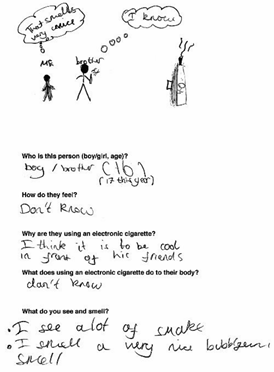 That smells
very
I know
ME
brother
Who is this person (boy/girl, age)?
boy / brother (16)
(17 this year)
How do they feel?
Don't know
Why are they using an electronic cigarette?
I think it is to be cool
in front of his friends
What does using an electronic cigarette do to their body?
don't know
What do you see and smell?
• I see a lot of smoke
• I smell a very nice bubblegum
smell